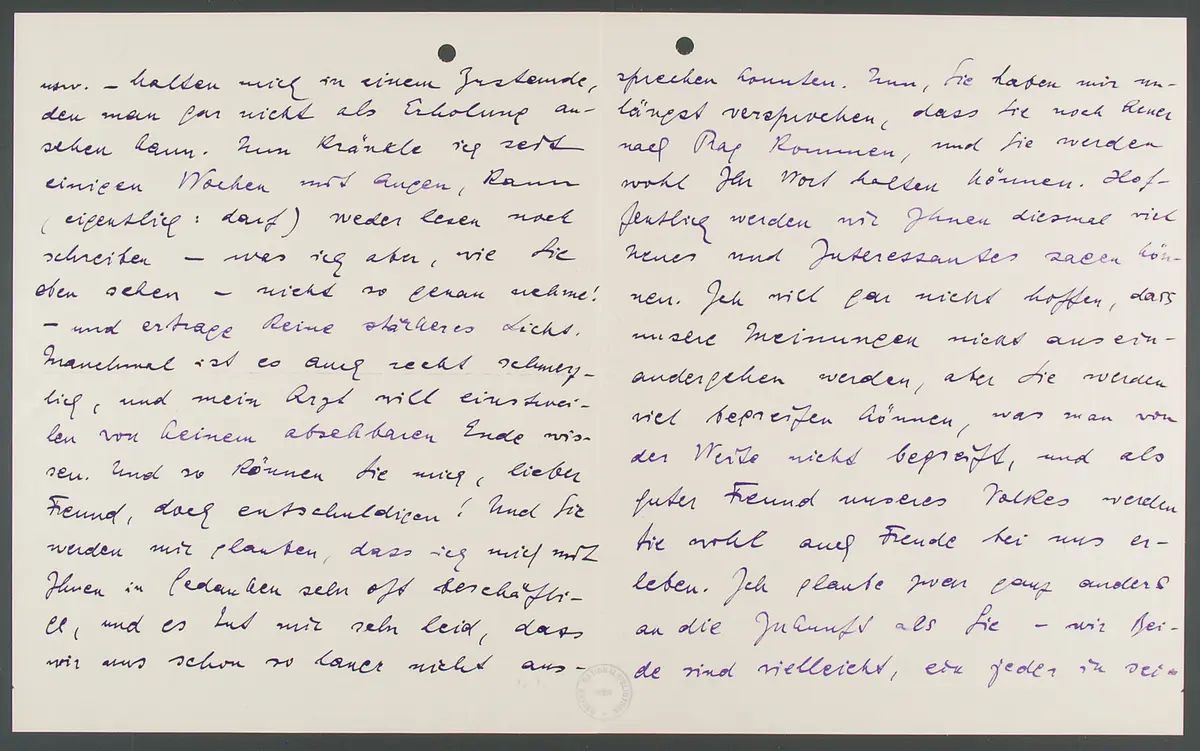 usw. – halten mich in einem Zustande,
den man gar nicht als Erholung an-
sehen kann. Nun kränkle ich seit
einigen Wochen mit Augen, kann
(eigentlich: darf) weder lesen noch
schreiben – was ich aber, wie Sie
eben sehen – nicht so genau nehme!
– und ertrage keine stärkeres Licht.
Manchmal ist es auch recht schmerz-
lich, und mein Arzt will einstwei-
len von keinem absehbaren Ende wis-
sen. Und so können Sie mich, lieber
Freund, doch entschuldigen! Und Sie
werden mir glauben, dass ich mich mit
Ihnen in Gedanken sehr oft beschäfti-
ge, und es tut mir sehr leid, dass
wir uns schon so lange nicht aus-
sprechen konnten. Nun, Sie haben mir un-
längst versprochen, dass Sie noch heuer
nach Prag kommen, und Sie werden
wohl Ihr Wort halten können. Hof-
fentlich werden wir Ihnen diesmal viel
Neues und Interessantes sagen kön-
nen. Ich will gar nicht hoffen, dass
unsere Meinungen nicht ausein-
andergehen werden, aber Sie werden
viel begreifen können, was man von
der Weite nicht begreift, und als
guter Freund unseres Volkes werden
Sie wohl auch Freude bei uns er-
leben. Ich glaube zwar ganz anders
an die Zukunft als Sie – wir Bei-
de sind vielleicht, ein jeder in sei-